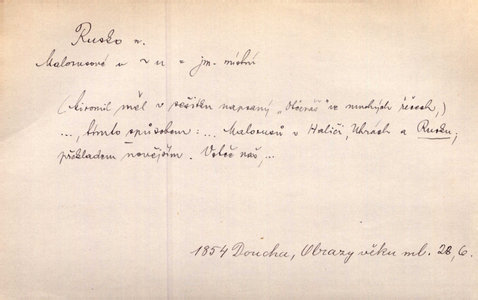 Rusko n.
Malorusové v ~ u = jm. místní
(Airomil měl v sešitku napsaný „Otčenáš" ve mnohých řečech,)
..., tímto způsobem: ... Malorusů v Haliči, Uhrách a Rusku,
překladem novějším. Votče naš, ...
1854 Doucha, Obrazy věku ml. 28, 6.